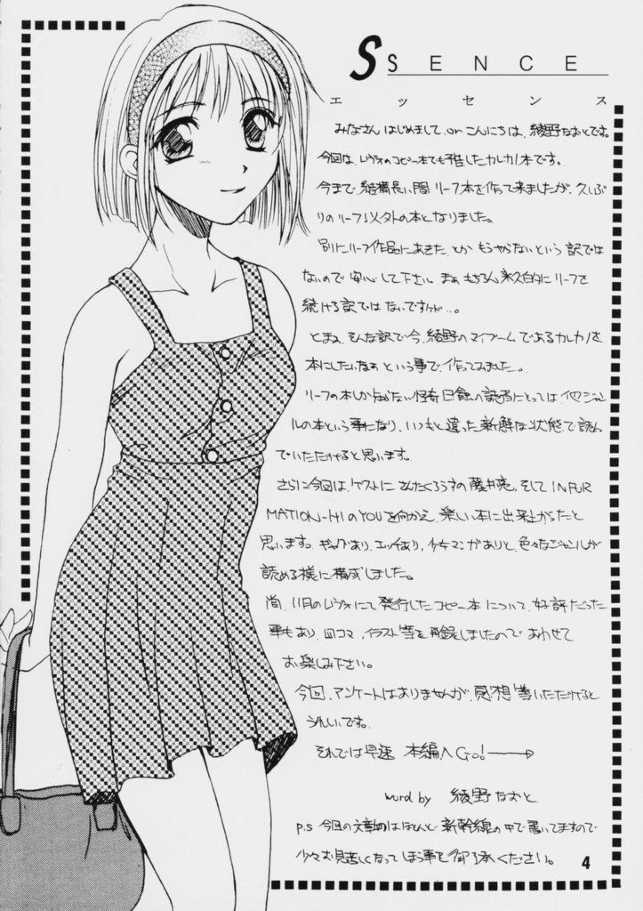 SSENCE
エッセンス
みなさんはじめまして or こんにちは、綾野なおとです。
今回は、レヴォのコピー本でも予告したカレカノ本です。
今まで、結構長い間リーフ本を作って来ましたが、久しぶ
りのリーフ以外の本となりました。
別にリーフ作品にあきたとかもうやらないという訳では
ないので安心して下さい。まぁ、もちろん永久的にリーフを
続ける訳ではないですけど…。
とまぁ、そんな訳で今、綾野のマイブームであるカレカノを
本にしたいなぁという事で、作ってみました。
リーフの本しか 怪奇日録の読者にとっては、他ジャン
ルの本という事になり、いつもと違った新鮮な状態で読ん
でいただけると思います。
さらに今回は、ゲストに 藤井亮、そして INFOR
MATION-HIのYOUを向かえ、楽しい本に出来上がったと
思います。ギャグあり、エッチあり、少女マンガありと、色々なジャンルが
読める様に構成しました。
尚、11月のレヴォにて発行したコピー本について、好評だった
事もあり、四コマ、イラスト等を再録しましたのであわせて
お楽しみ下さい。
今回、アンケートはありませんが、感想等いただけると
うれしいです。
それでは早速 本編へGo!
word by 綾野なおと
P.S 今回の文章はほとんど新幹線の中で書いてますので
少々お見苦しくなってしまう事を御了承ください。
4